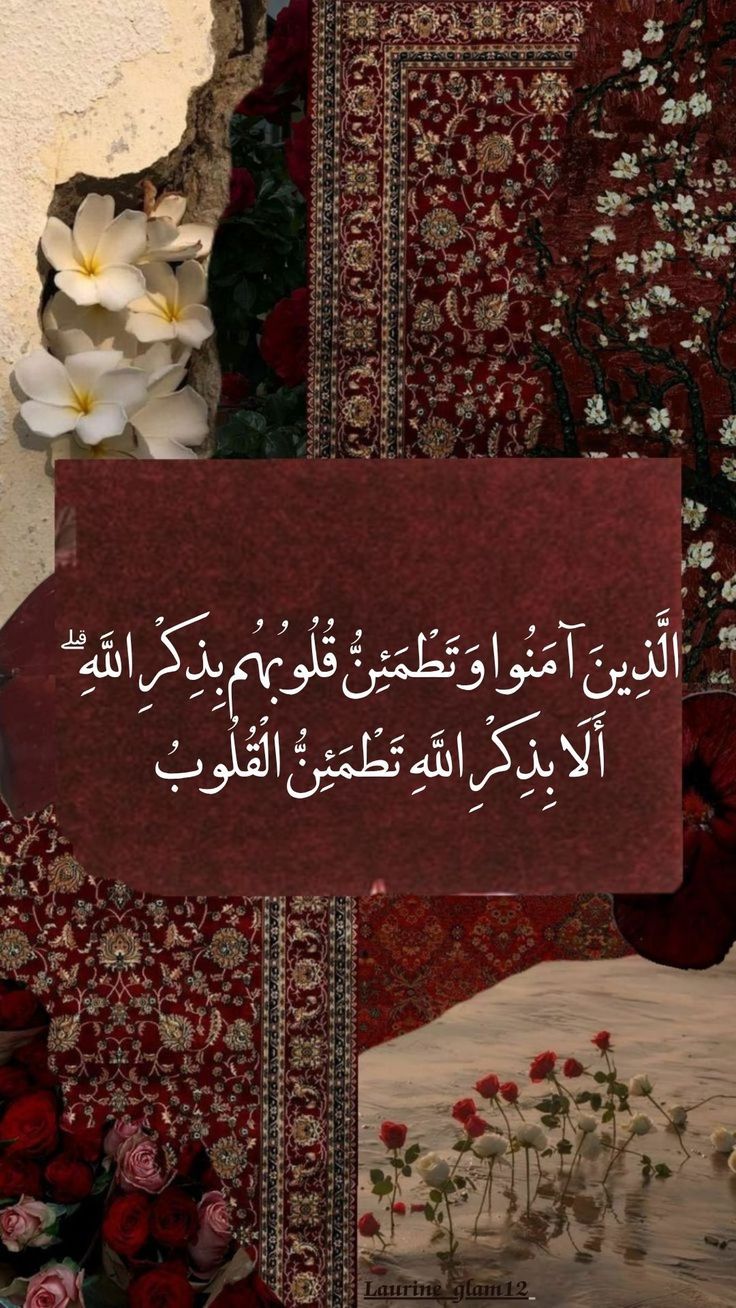 الَّذِينَ آمَنُوا وَتَطْمَئِنُّ قُلُوبُهُم بِذِكْرِ اللَّهِ ۗ
أَلَا بِذِكْرِ اللَّهِ تَطْمَئِنُّ الْقُلُوبُ
Laurine_glam12_